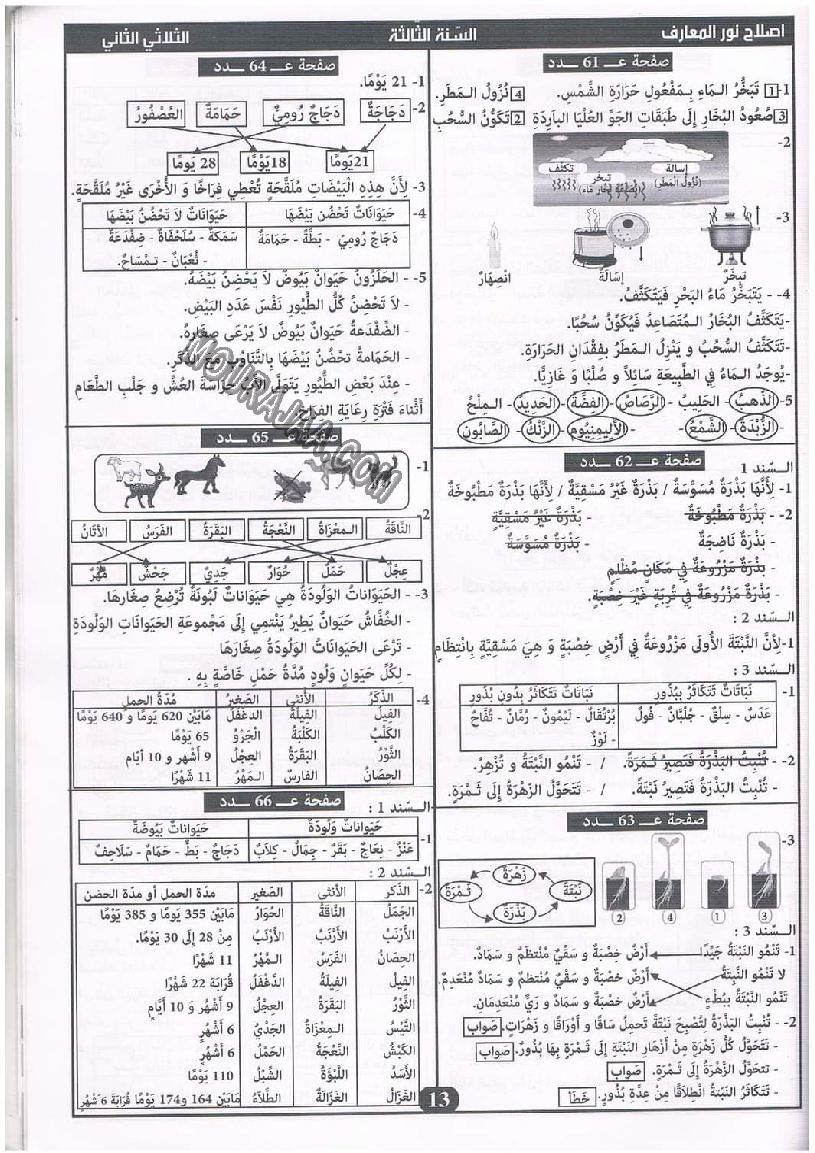 اصلاح نور المعارف
السّنة الثّالثة
الثلاثي الثاني
صفحة عـــ 61 ـــدد
1- 1 تَبَخُّرُ الـماءِ بِـمَفْعُولِ حَرَارَةِ الشَّمْسِ. 4 نُزُولُ الـمَطَرِ.
3 صُعُودُ البُخَارِ إِلَى طَبَقَاتِ الجَوِّ العُلْيَا البَارِدَةِ 2 تَكَوُّنُ السُّحُبِ
2-
إسالة
(نُزُولُ المَطَرِ)
تبخر
تكثّف
3-
تبخّرٌ
إسَالَةٌ
انْصِهَارٌ
4- - يَتَبَخَّرُ مَاءُ البَحْرِ فَيَتَكَثَّفُ.
-يَتَكَثَّفُ البُخَارُ الـمُتَصَاعِدُ فَيُكَوِّنُ سُحُبًا.
-تَتَكَثَّفُ السُّحُبُ وَ يَنْزِلُ الـمَطَرُ بِفِقْدَانِ الحَرَارَةِ.
-يُوجَدُ الـمَاءُ فِي الطَّبِيعَةِ سَائِلًا وَ صُلْبًا وَ غَازِيًّا.
5- الذَّهَبُ - الحَلِيبُ - الرَّصَاصُ - الفِضَّةُ - الحَدِيدُ - الـمِلْحُ
- الزُّبْدَةُ - الشَّمْعُ - الأَلِيمِنْيُوم - الزِّنْكُ - الصَّابُون
صفحة عـــ 62 ـــدد
الـسّند 1
1- لِأَنَّهَا بَذْرَةٌ مُسَوَّسَةٌ / بَذْرَةٌ غَيْرُ مَسْقِيَّةٌ / لِأَنَّهَا بَذْرَةٌ مَطْبُوخَةٌ
2- - بَذْرَةٌ مَطْبُوخَةٌ - بَذْرَةٌ غَيْرُ مَسْقِيَّةٍ
بَذْرَةٌ نَاضِجَةٌ - بَذْرَةٌ مُسَوَّسَةٌ
- بَذْرَةٌ مَزْرُوعَةٌ فِي مَكَانٍ مُظْلِمٍ
- بَذْرَةٌ مَزْرُوعَةٌ فِي تُرْبَةٍ غَيْرِ خِصْبَةٍ.
الـسّند 2 :
1-لِأَنَّ النَّبْتَةَ الأُولَى مَزْرُوعَةٌ فِي أَرْضٍ خِصْبَةٍ وَ هِيَ مَسْقِيَّةٌ بِانْتِظَامٍ
الـسّند 3 :
1-
نَبَاتَاتٌ تَتَكَاثَرُ بِبُذُورِ
نَبَاتَاتٌ تَتَكَاثَرُ بِدُونِ بُذُورِ
عَدَسٌ - سِلْقٌ - جُلْبَّانٌ - فُولٌ
بُرْتُقَالٌ - لَيْمُونٌ - رُمَّانٌ - تُفَّاحٌ
- لَوْزٌ
2- - تُنْبِتُ البَذْرَةُ فَتَصِيرُ ثَمَرَةً. / - تَنْمُو النَّبْتَةُ وَ تُزْهِرُ.
- تُنْبِتُ البَذْرَةُ فَتَصِيرُ نَبْتَةً. / - تَتَحَوَّلُ الزَّهْرَةُ إِلَى ثَمَرَةٍ.
صفحة عـــ 63 ـــدد
3-
3
1
4
2
زَهْرَةٌ
نَبْتَةٌ
بَذْرَةٌ
ثَمَرَةٌ
الـسّند 3 :
1- تَنْمُو النَّبْتَةُ جَيِّدًا أَرْضٌ خِصْبَةٌ وَ سَقْيٌ مُنْتَظَمٌ وَ سَمَادٌ.
لا تَنْمُو النَّبِتَةُ أَرْضٌ خِصْبَةٌ وَ سَقْيٌ مُنْتَظمٌ وَ سَمَادٌ مُنْعَدِمٌ.
تَنْمُو النَّبْتَةُ بِبُطْءٍ أَرْضٌ خِصْبَةٌ وَ سَمَادٌ وَ رَيٌّ مُنْعَدِمَانِ.
2- - تُنْبِتُ البَذْرَةُ لِتُصْبِحَ نَبْتَةً تَحمِلُ سَاقًا وَ أَوْرَاقًا وَ زَهَرَاتٍ. صَواب
- تَتَحَوَّلُ كُلُّ زَهْرَةٍ مِنْ أَزْهَارِ النَّبْتَةِ إِلَى ثَمَرَةٍ بِهَا بُذُورٌ. صَواب
- تتحَوَّلُ الزَّهْرَةُ إِلَى ثَمَرَةٍ. صَواب
- تَتَكَاثَرُ النَّبْتةُ انْطِلَاقًا مِنْ عِدَّةِ بُذُورٍ. خَطَأ
صفحة عـــ 64 ـــدد
1- 21 يَوْمًا.
2- دَجَاجَةٌ
دَجَاجٌ رُومِيٌّ
حَمَامَةٌ
العُصْفُورُ
21يَوْمًا
18يَوْمًا
28 يَومًا
3- لِأَنَّ هِذِهِ الْبَيْضَاتِ مُلَقَّحَةٍ تُعْطِي فِرَاخًا وَ الأُخْرَى غَيْرُ مُلَقَّحَةٍ.
4-
حَيَوَانَاتٌ تَحْضُن بَيْضَهَا
حَيَوَانَاتٌ لاَ تَحْضُنُ بَيْضَهَا
دَجَاجٌ رُومِيٌّ - بَطَّةٌ - حَمَامَةٌ
سَمَكَةٌ - سُلَحْفَاةٌ - ضِفْدَعَةٌ
- ثُعْبَان - تِـمْسَاحٌ.
5- - الحَلَزُونُ حَيَوَانٌ بَيُوضٌ لاَ يَحْضُنُ بَيْضَهُ.
- لاَ تَحْضِنُ كُلُّ الطُّيُورِ نَفْسَ عَدَدِ البَيْضِ.
- الضِّفْدَعَةُ حَيَوَانٌ بَيُوضٌ لاَ يَرْعَى صِغَارَهُ.
- الحَمَامَةُ تحْضُنُ بَيْضَهَا بِالتَّنَاوُبِ مَعَ الذَّكَرِ.
- عِنْدَ بَعْضِ الطُّيُورِ يَتَوَلَّى الأَبُ حِرَاسَةَ العُشِّ وَ جَلْبِ الطَّعَامِ
أَثْنَاءَ فَتْرَةِ رِعَايَةِ الفِرَاخِ.
MOURAJAA.COM
صفحة عـــ 65 ـــدد
1-
2-
النَّاقَةُ
الـمِعْزَاةُ
النَّعْجَةُ
البَقَرَةُ
الفَرَسُ
الأَتَانُ
عِجْلٌ
حَمَلٌ
حُوَارٌ
جَدْيٌ
جَحْشٌ
مُهْرٌ
3- - الحَيَوَانَاتُ الوَلُودَةُ هِيَ حَيَوَانَاتٌ لَبُونَةٌ تُرْضِعُ صِغَارَهَا.
- الخُفَّاشُ حَيَوَانٌ يَطِيرُ يَنْتَمِي إِلَى مَجْمُوعَةِ الحَيَوَانَاتِ الوَلُودَةِ
- تَرْعَى الحَيَوَانَاتُ الوَلُودَةُ صِغَارَهَا
- لِكُلِّ حَيَوَانٍ وَلُودٍ مُدَّةُ حَمْلٍ خَاصَّةٍ بِهِ .
4-
الذَّكَرُ الأُنْثَى الصَّغِيرُ مُدّةُ الحمل
الفِيلُ الفِيلَةُ الدَّغْفَلُ مَابَيْنَ 620 يَومًا وَ 640 يَوْمًا
الكَلْبُ الكَلْبَةُ الْجَرْوُ 65 يَومًا
الثَّوْرُ البَقَرَةُ العِجْلُ 9 أَشْهُرٍ و 10 أيّام
الحِصَانُ الفارسُ المَهْرُ 11 شَهْرًا
صفحة عـــ 66 ـــدد
الـسّند 1 :
1-
حَيَوَانَاتٌ وَلُودَةٌ
حَيَوَانَاتٌ بَيُوضَةٌ
عَنْزٌ - نِعَاجٌ - بَقَرٌ - جِمَالٌ - كِلاَبٌ
دَجَاجٌ - بَطٌّ - حَمَامٌ - سَلاَحِفٌ
الـسّند 2 :
2-
الذّكر الأنثى الصّغير مدّة الحمل أو مدّة الحضن
الجَمَلُ النَّاقَةُ الحُوَارُ مَابَيْنَ 355 يَومًا وَ 385 يَوْمًا
الأَرْنَبُ الأَرْنَبُ الأَرْنَبُ مِنْ 28 إِلَى 30 يَومًا.
الحِصَانُ الفَرَسُ المُهْرُ 11 شَهْرًا
الفِيلُ الفِيلَةُ الدَّغْفَلُ قُرَابَةَ 22 شَهْرًا
الثَّوْرُ البَقَرَةُ العِجْلُ 9 أَشْهُرٍ وَ 10 أَيَّامٍ
التَّيْسُ الـمِعْزَاةُ الجَدْيُ 6 أَشْهُرٍ
الكَبْشُ النَّعْجَةُ الحَمَلُ 6 أَشْهُرٍ
الأَسَدُ اللَّبُؤَةُ الشِّبْلُ 110 يَوْمًا
الغَزَالُ الغَزَالَةُ الطَّلاَءُ مَابَيْنَ 164 و 174 يومًا قُرَابَةَ 6 شَهْرٍ
13